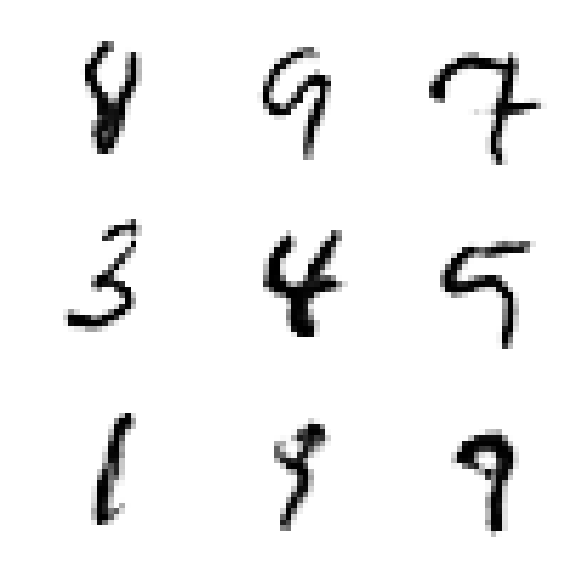 8 9 7
3 4 5
1 9 9